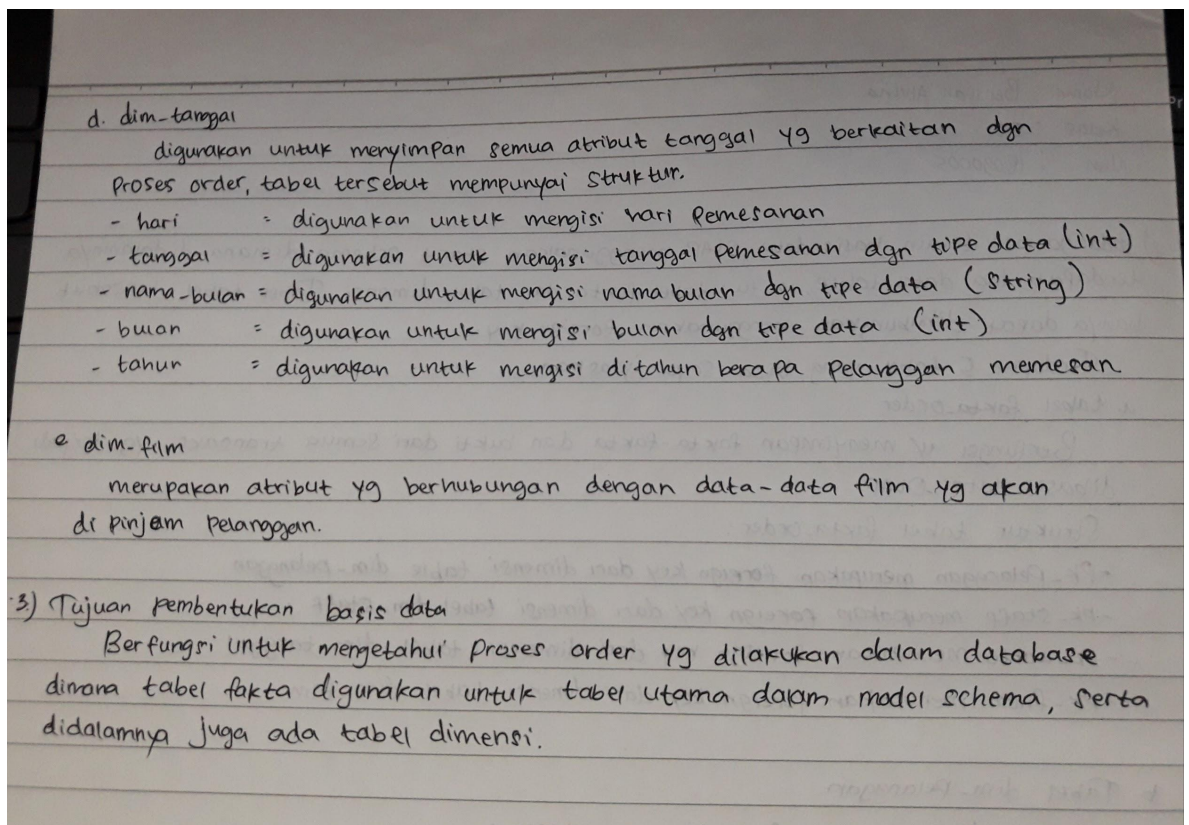 d. dim-tanggal
digunakan untuk menyimpan semua atribut tanggal yg berkaitan dgn
Proses order, tabel tersebut mempunyai struktur.
- hari = digunakan untuk mengisi hari Pemesanan
- tanggal = digunakan untuk mengisi tanggal Pemesanan dgn tipe data (int)
- nama-bulan = digunakan untuk mengisi nama bulan dgn tipe data (String)
- bulan = digunakan untuk mengisi bulan dgn tipe data (int)
- tahun = digunakan untuk mengisi ditahun berapa Pelanggan memesan
e dim-film
merupakan atribut yg berhubungan dengan data-data film yg akan
di pinjam Pelanggan.
3.) Tujuan pembentukan basis data
Berfungsi untuk mengetahui Proses order yg dilakukan dalam database
dimana tabel fakta digunakan untuk tabel utama dalam model schema, serta
didalamnya juga ada tabel dimensi.